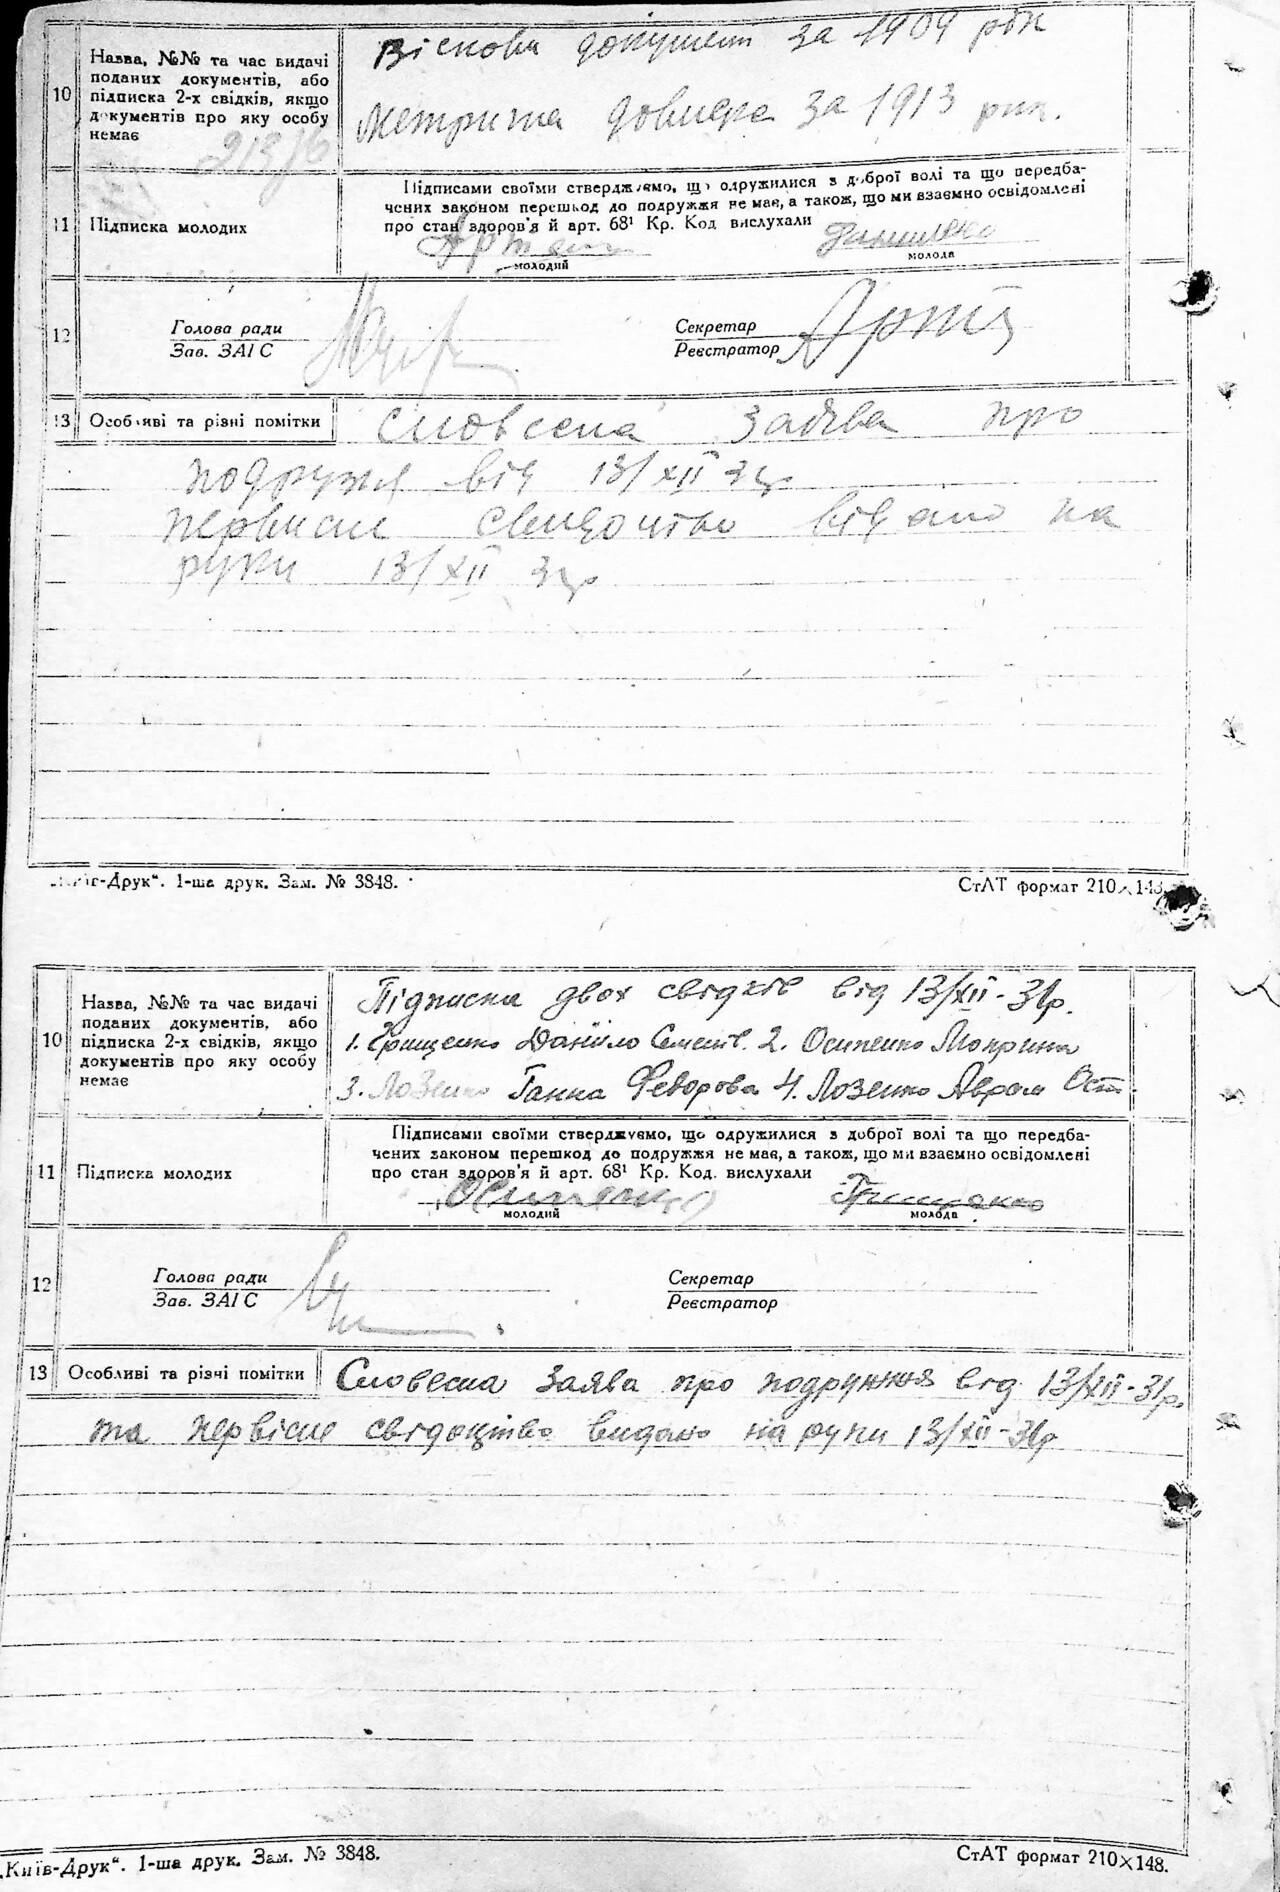 10
Назва, №№ та час видачі
поданих документів, або
підписка 2-х свідків, якщо
документів про яку особу
немає
213/6
документ за 1909 рік
Метрична за 1913 рік.
11 Підписка молодих
Підписами своїми стверджуємо, що одружилися з доброї волі та що передба-
чених законом перешкод до подружжя не має, а також, що ми взаємно освідомлені
про стан здоров'я й арт. 68¹ Кр. Код вислухали
молодий молода
12
Голова ради Секретар
Зав. ЗАГС Реєстратор
13 Особливі та різні помітки Словесна заява про
подружжя від 13/XII 31р
первисне свидоцтво видано на
руки 13/XII 31р
„Київ-Друк“. 1-ша друк. Зам. № 3848. СтАТ формат 210×148.
10
Назва, №№ та час видачі
поданих документів, або
підписка 2-х свідків, якщо
документів про яку особу
немає
Підписка двох свідків від 13/XII-31р.
1. Грищенко Даніїло Семенів. 2. Осипенко Мокрина
3. Лозенко Ганна Федорова 4. Лозенко Аврам Ост.
11 Підписка молодих
Підписами своїми стверджуємо, що одружилися з доброї волі та що передба-
чених законом перешкод до подружжя не має, а також, що ми взаємно освідомлені
про стан здоров'я й арт. 68¹ Кр. Код. вислухали
Осипенко Грищенко
молодий молода
12
Голова ради Секретар
Зав. ЗАГС Реєстратор
13 Особливі та різні помітки Словесна заява про подружжя від 13/XII-31р.
та первісне свідоцтво видано на руки 13/XII-31р
„Київ-Друк“. 1-ша друк. Зам. № 3848. СтАТ формат 210×148.